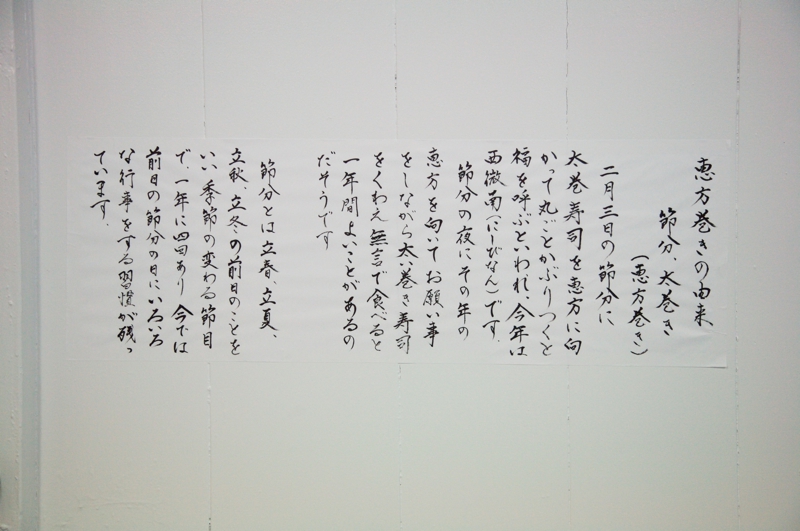 恵方巻きの由来
節分、太巻き
(恵方巻き)
二月三日の節分に
太巻寿司を恵方に向
かって丸ごとかぶりつくと
福を呼ぶといわれ、今年は
西微南(にしびなん)です.
節分の夜にその年の
恵方を向いてお願い事
をしながら太い巻き寿司
をくわえ無言で食べると
一年間よいことがあるの
だそうです
節分とは立春、立夏、
立秋、立冬の前日のことを
いい季節の変わる節目
で、一年に四回あり今では
前日の節分の日にいろいろ
な行事をする習慣が残っ
ています.